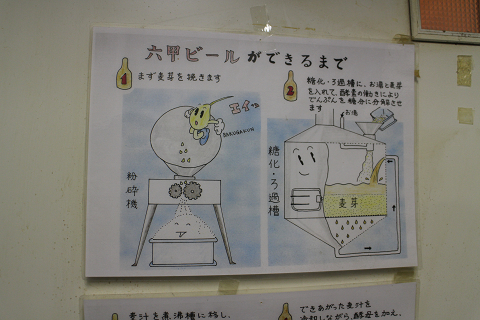 六甲ビールができるまで
1
まず麦芽を挽きます
エイッ
BAKUGAKUN
粉砕機
2
糖化・ろ過槽に、お湯と麦芽
を入れて、酵素の働きにより
でんぷんを糖分に分解させ
ます
お湯
糖化・ろ過槽
麦芽
麦汁を煮沸槽に移し、
できあがった麦汁を
冷却しながら、酵母を加え、